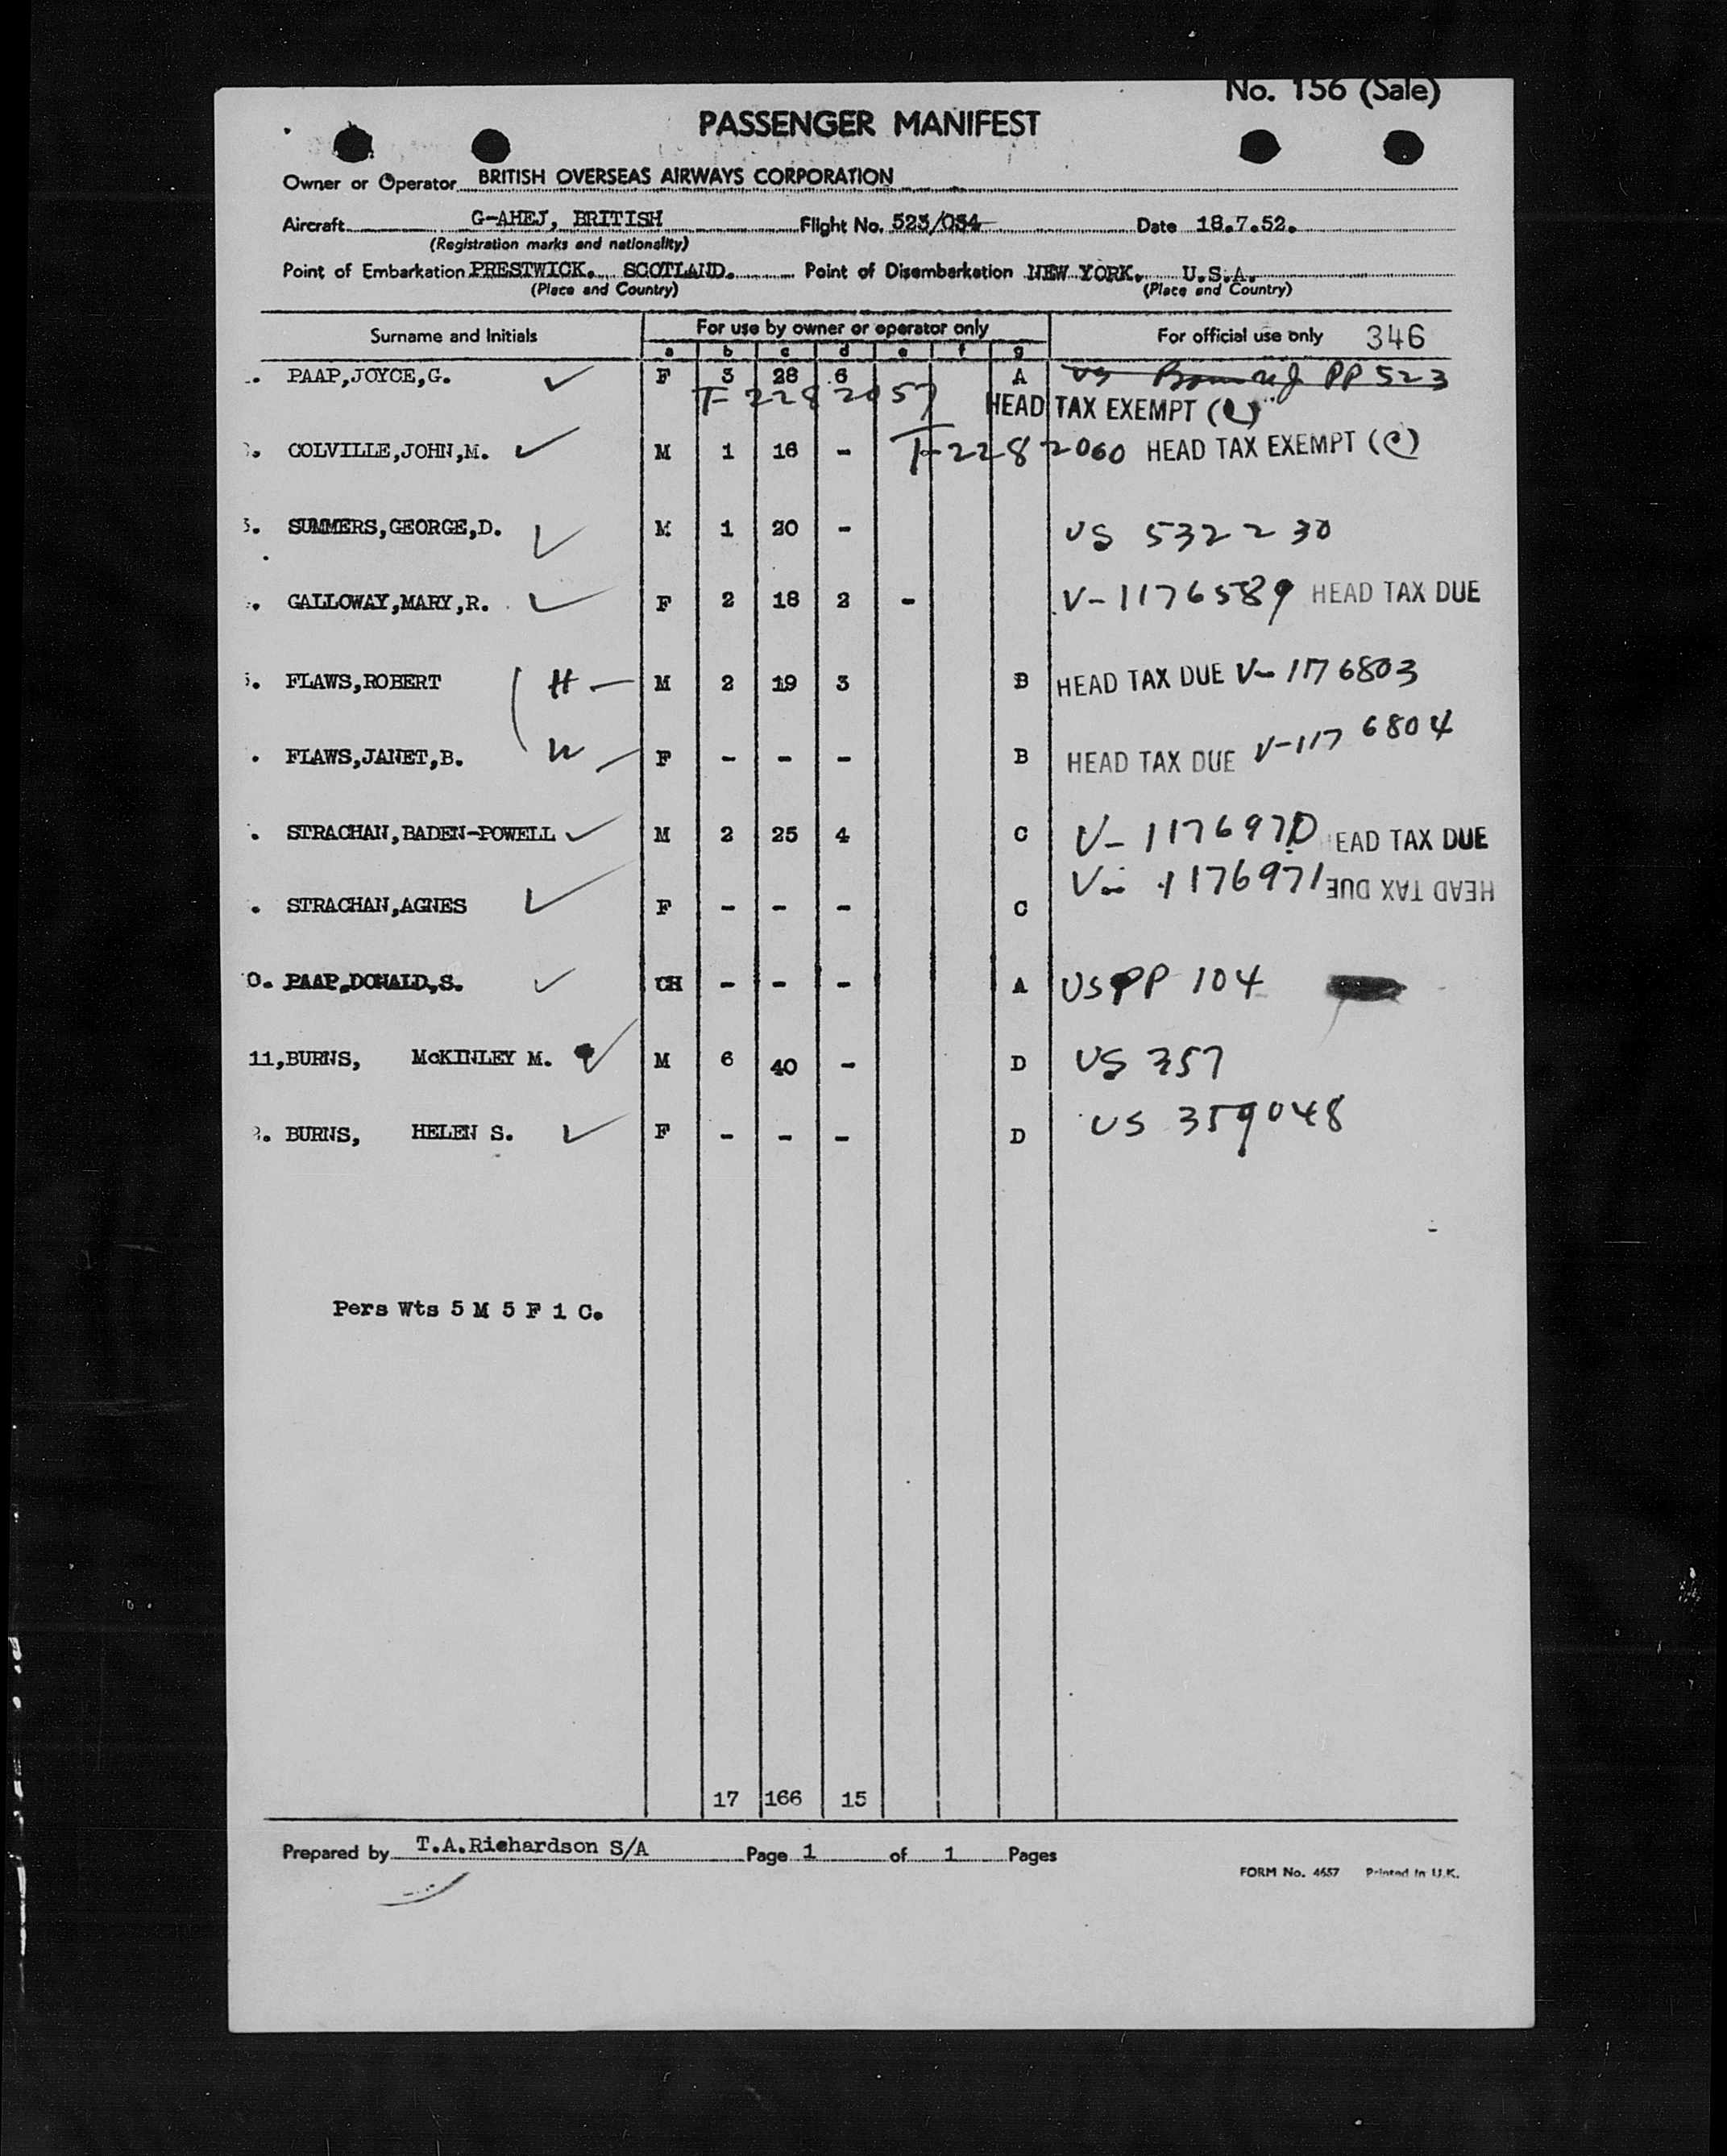 No. 156 (Sale)
PASSENGER MANIFEST
Owner or Operator BRITISH OVERSEAS AIRWAYS CORPORATION
Aircraft G-AHEJ, BRITISH Flight No. 523/034 Date 18.7.52.
(Registration marks and nationality)
Point of Embarkation PRESTWICK. SCOTLAND. Point of Disembarkation NEW YORK. U.S.A.
(Place and Country) (Place and Country)
Surname and Initials For use by owner or operator only For official use only 346
a b c d e f g
. PAAP,JOYCE,G. F 3 28 6 A US PP 523
T-2282057 HEAD TAX EXEMPT (C)
. COLVILLE,JOHN,M. M 1 16 - T-2282060 HEAD TAX EXEMPT (C)
3. SUMMERS,GEORGE,D. M 1 20 - US 532230
. GALLOWAY,MARY,R. F 2 18 2 - V-1176589 HEAD TAX DUE
. FLAWS,ROBERT H - M 2 19 3 B HEAD TAX DUE V-1176803
. FLAWS,JANET,B. W - F - - - B HEAD TAX DUE V-1176804
. STRACHAN,BADEN-POWELL M 2 25 4 C V-1176970 EAD TAX DUE
. STRACHAN,AGNES F - - - C V-1176971 HEAD TAX DUE
0. PAAP,DONALD,S. CH - - - A US PP 104
11,BURNS, McKINLEY M. M 6 40 - D US 357
. BURNS, HELEN S. F - - - D US 359048
Pers Wts 5 M 5 F 1 C.
17 166 15
Prepared by T.A.Richardson S/A Page 1 of 1 Pages
FORM No. 4657 Printed in U.K.